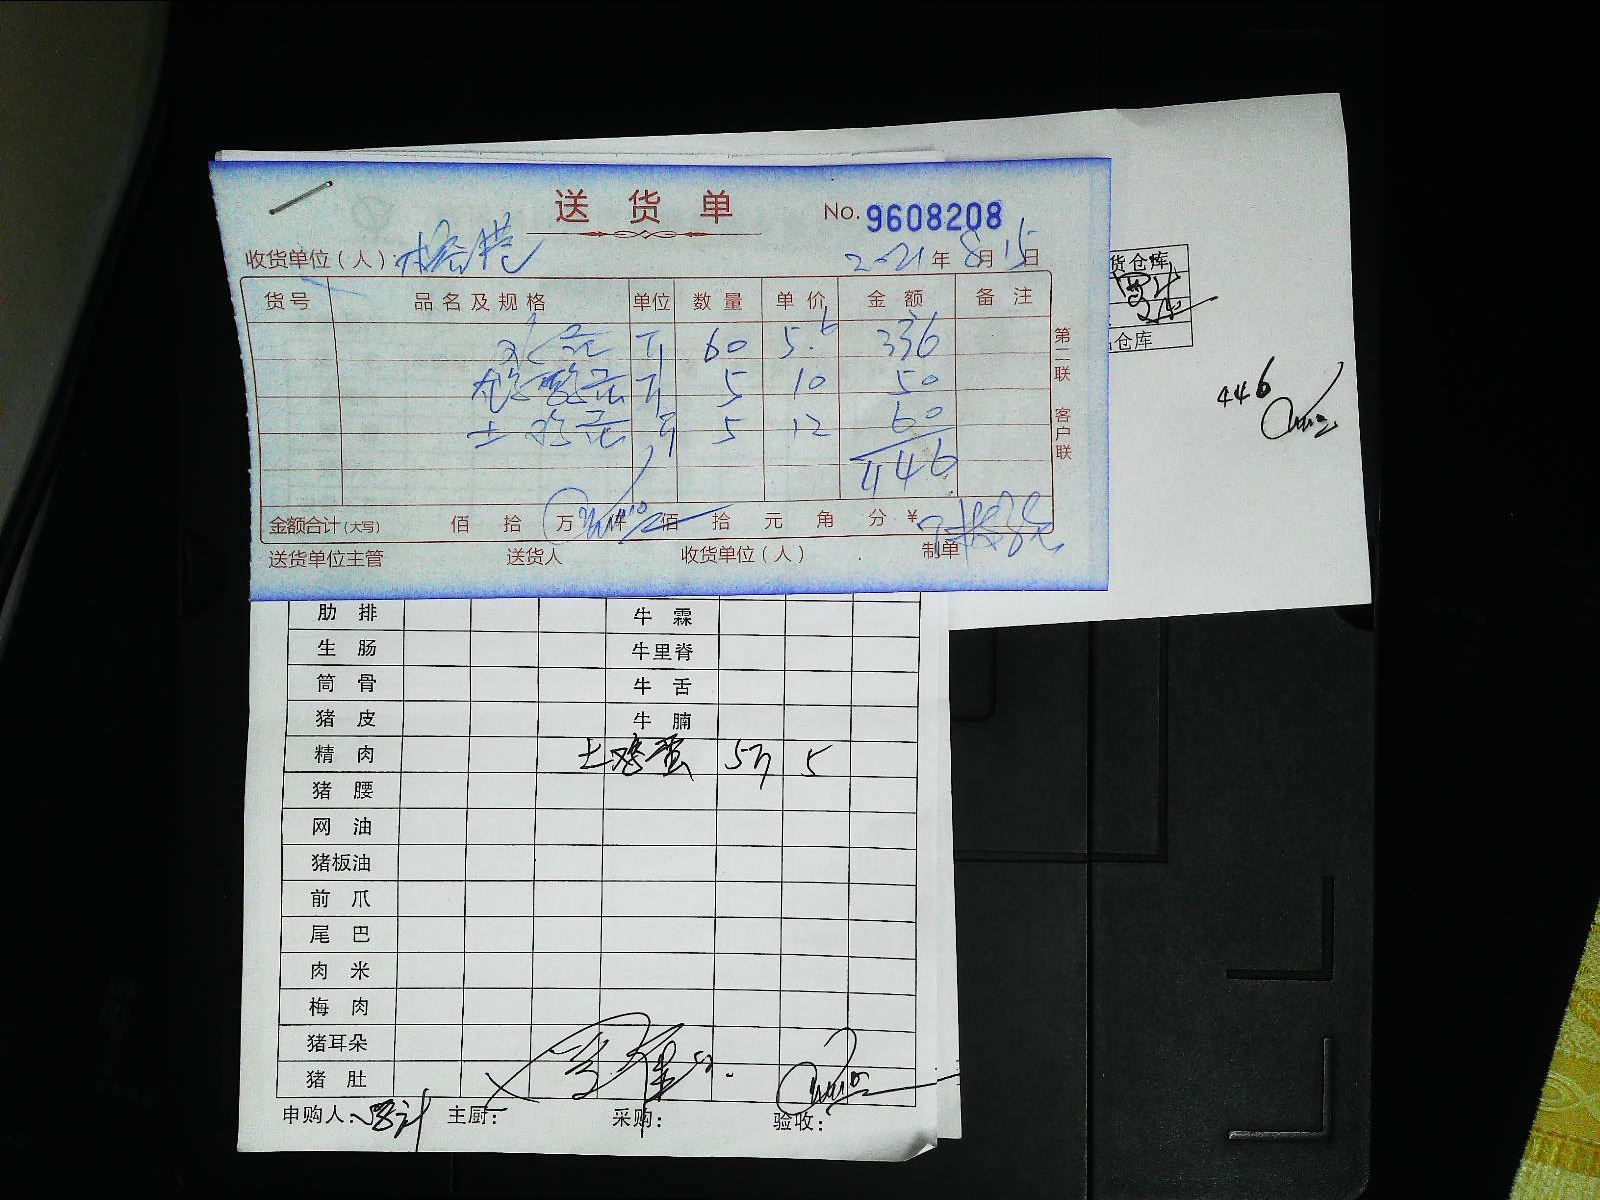 送货单 No. 9608208
收货单位(人): 2021年8月15日
货号 品名及规格 单位 数量 单价 金额 备注
斤 60 5.6 336
斤 5 10 50
土鸡蛋 斤 5 12 60
446
金额合计(大写) 佰 拾 万 仟 佰 拾 元 角 分 ¥
送货单位主管 送货人 收货单位(人) 制单
第二联 客户联
货仓库
仓库
446
肋排 牛霖
生肠 牛里脊
筒骨 牛舌
猪皮 牛腩
精肉 土鸡蛋 5斤 5
猪腰
网油
猪板油
前爪
尾巴
肉米
梅肉
猪耳朵
猪肚
申购人: 主厨: 采购: 验收: